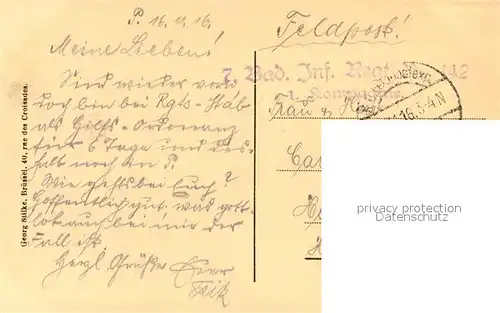 P. 16.11.16.
Meine Lieben!
Sind wieder vorn
doch bin bei Rgts-Stab
als Hilfs-Ordonanz
für 6 Tage und des-
halb noch in P.
Wie gehts bei Euch?
Hoffentlich gut, was gott-
lob auch bei mir der
Fall ist.
Herzl. Grüße Euer
Georg Stilke, Brüssel, 40, rue des Croisades.
Feldpost!
7. Bad. Inf. Regt. 142
1. Kompagnie
16.3-4N
Frau
privacy protection
Datenschutz